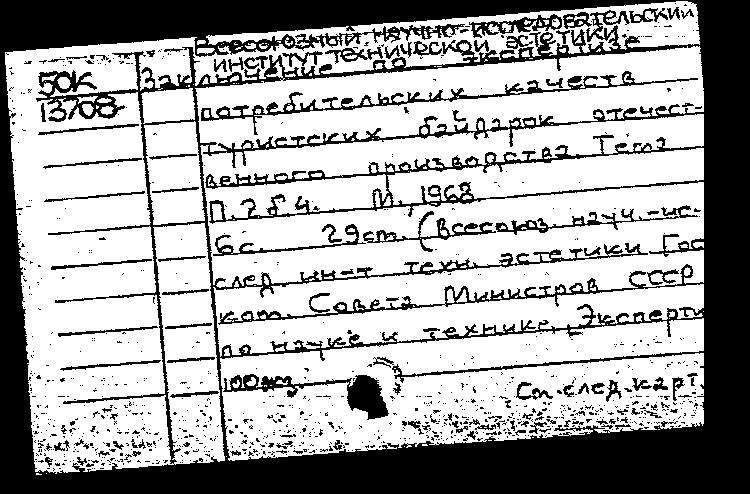 Всесоюзный научно-исследовательский
институт технической эстетики.
50К Заключение по экспертизе
13708 потребительских качеств
туристских байдарок отечест-
венного производства. Тема
П.2б.4. М., 1968.
6с. 29 ст. (Всесоюз. науч.-ис-
след. ин-т техн. эстетики Гос
ком. Совета Министров СССР
по науке и технике. Эксперти
100 экз.
См. след. карт.